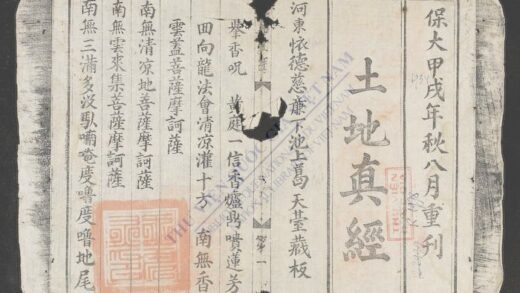 保大甲戌年秋八月重刊
土地真經
河東怀德慈廉下池上葛天臺藏板
舉香呪 黄庭一信香爐鼎噴蓮芳
回向龍法會清凉灌十方 南無香
雲蓋菩薩摩訶薩
南無清凉地菩薩摩訶薩
南無雲來集菩薩摩訶薩
南無三滿多没馱喃唵度嚕度嚕地尾
THƯ VIỆN QUỐC GIA VIỆT NAM